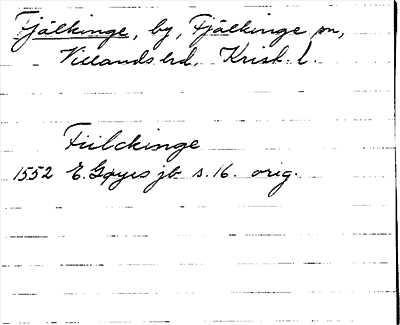 Fjälkinge, by, Fjälkinge sn,
Villands hd. Krist. l.
Fiilckinge
1552 E. Gøyes jb s. 16. orig.